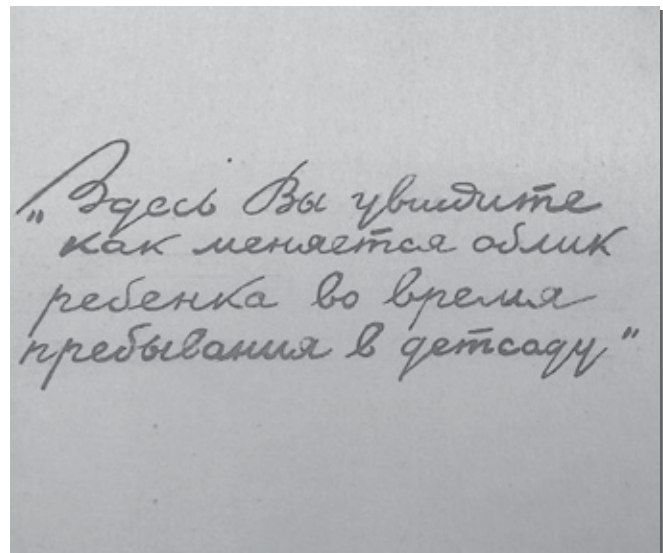 „Здесь Вы увидите
как меняется облик
ребенка во время
пребывания в детсаду"